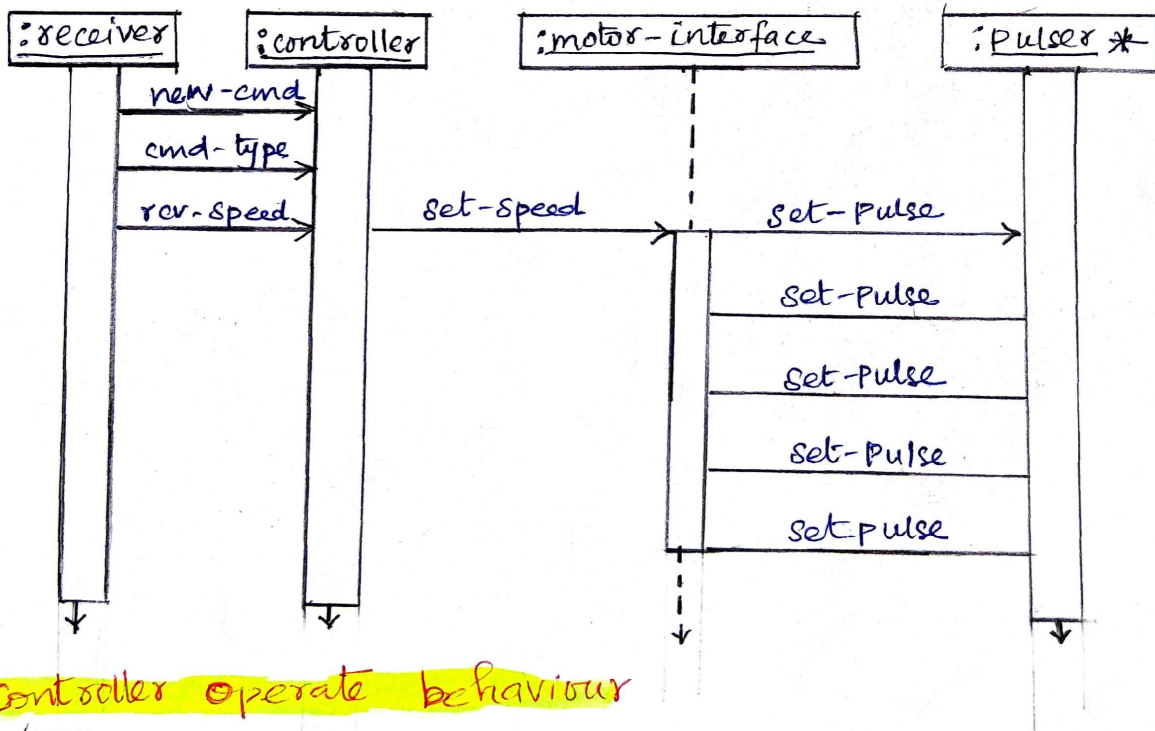 :receiver :controller :motor-interface :pulser *
new-cmd
cmd-type
rcv-speed set-speed set-pulse
set-pulse
set-pulse
set-pulse
set pulse
controller operate behaviour